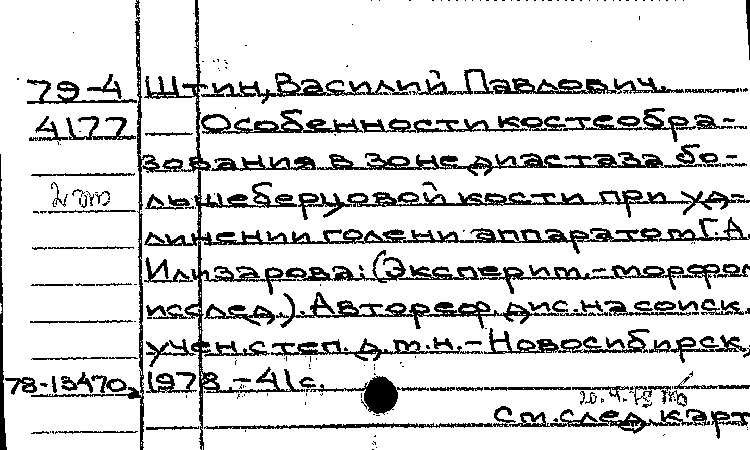 79-4 Штин, Василий Павлович.
4177 Особенности костеобра-
зования в зоне диастаза бо-
льшеберцовой кости при уд-
линении голени аппаратом Г.А.
Илизарова: (Эксперим.-морфол
исслед.). Автореф. дис. на соиск.
учен. степ. д.м.н. - Новосибирск,
78-13470 1978. - 41 с.
См. след. карт